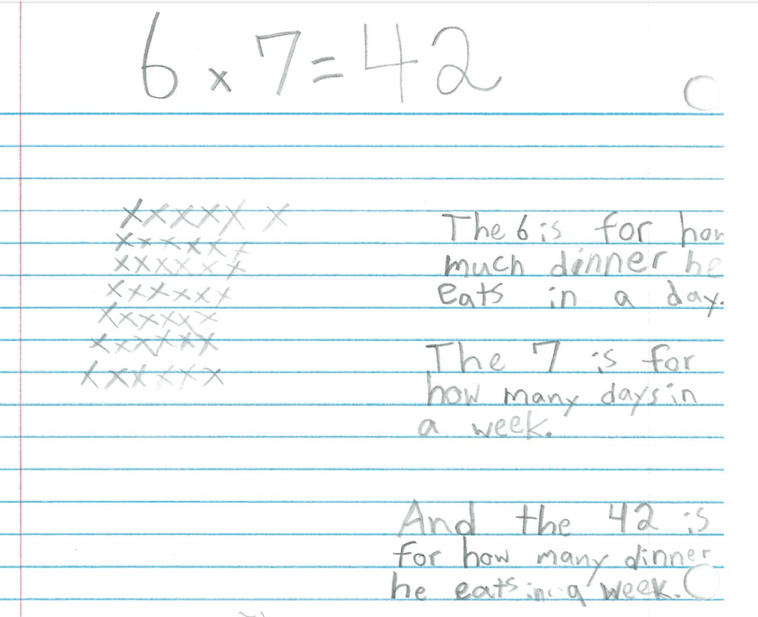 6 x 7 = 42
xxxxx x
xxxxxx
xxxxxx
xxxxxx
xxxxxx
xxxxxx
xxxxxx
The 6 is for how
much dinner he
eats in a day.
The 7 is for
how many days in
a week.
And the 42 is
for how many dinner
he eats in a week.